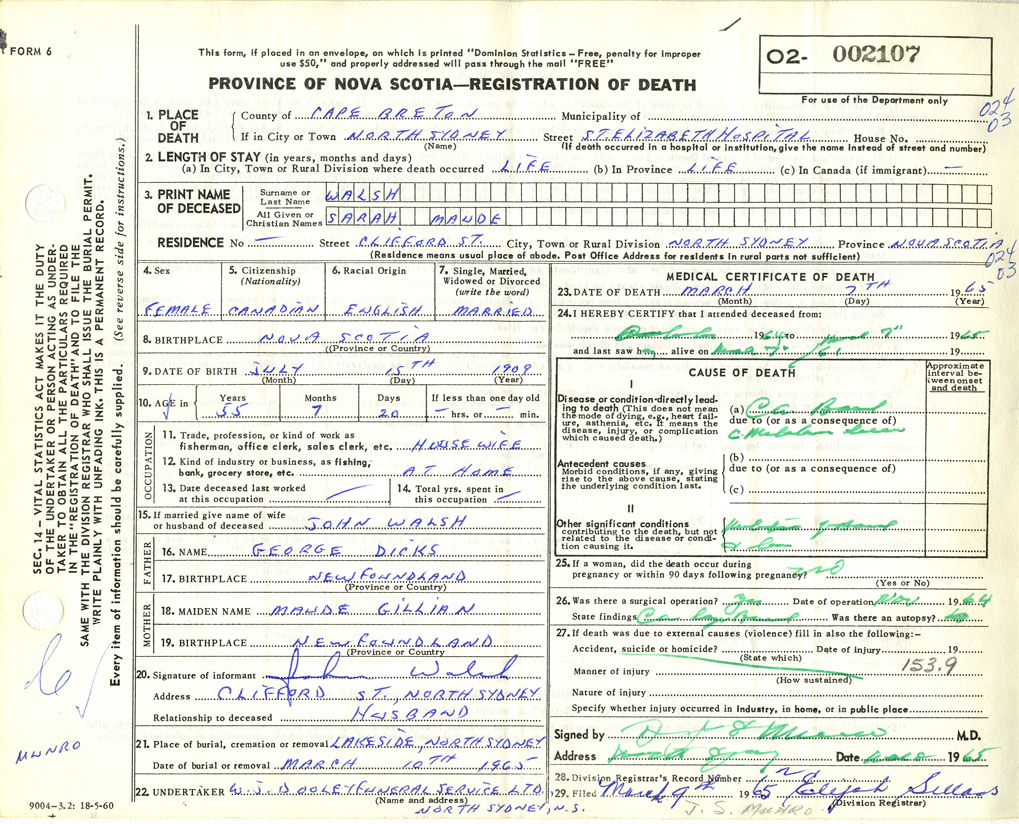 FORM 6
This form, if placed in an envelope, on which is printed "Dominion Statistics – Free, penalty for improper
use $50," and properly addressed will pass through the mail "FREE"
PROVINCE OF NOVA SCOTIA—REGISTRATION OF DEATH
O2- 002107
For use of the Department only
024
03
1. PLACE OF DEATH
County of CAPE BRETON Municipality of
If in City or Town NORTH SYDNEY Street ST. ELIZABETH HOSPITAL House No.
(Name) (If death occurred in a hospital or institution, give the name instead of street and number)
2. LENGTH OF STAY (in years, months and days)
(a) In City, Town or Rural Division where death occurred LIFE (b) In Province LIFE (c) In Canada (if immigrant) —
3. PRINT NAME OF DECEASED
Surname or Last Name WALSH
All Given or Christian Names SARAH MAUDE
RESIDENCE No — Street CLIFFORD ST. City, Town or Rural Division NORTH SYDNEY Province NOVA SCOTIA
(Residence means usual place of abode. Post Office Address for residents in rural parts not sufficient)
024
03
4. Sex
FEMALE
5. Citizenship (Nationality)
CANADIAN
6. Racial Origin
ENGLISH
7. Single, Married, Widowed or Divorced (write the word)
MARRIED
8. BIRTHPLACE NOVA SCOTIA
(Province or Country)
9. DATE OF BIRTH JULY 15TH 1909
(Month) (Day) (Year)
10. AGE in Years Months Days If less than one day old
55 7 20 — hrs. or — min.
OCCUPATION
11. Trade, profession, or kind of work as
fisherman, office clerk, sales clerk, etc. HOUSEWIFE
12. Kind of industry or business, as fishing,
bank, grocery store, etc. AT HOME
13. Date deceased last worked
at this occupation
14. Total yrs. spent in
this occupation
15. If married give name of wife
or husband of deceased JOHN WALSH
FATHER
16. NAME GEORGE DICKS
17. BIRTHPLACE NEWFOUNDLAND
(Province or Country)
MOTHER
18. MAIDEN NAME MAUDE GILLIAN
19. BIRTHPLACE NEWFOUNDLAND
(Province or Country
20. Signature of informant John Walsh
Address CLIFFORD ST., NORTH SYDNEY
Relationship to deceased HUSBAND
21. Place of burial, cremation or removal LAKESIDE, NORTH SYDNEY
Date of burial or removal MARCH 10TH 1965
22. UNDERTAKER W.J. DOOLEY FUNERAL SERVICE LTD.
(Name and address)
NORTH SYDNEY, N.S.
MEDICAL CERTIFICATE OF DEATH
23. DATE OF DEATH MARCH 7TH 1965
(Month) (Day) (Year)
24. I HEREBY CERTIFY that I attended deceased from:
1964 to March 7" 1965
and last saw h alive on March 7" 19
CAUSE OF DEATH
Approximate interval between onset and death
I
Disease or condition directly leading to death (This does not mean the mode of dying, e.g., heart failure, asthenia, etc. It means the disease, injury, or complication which caused death.)
(a) Ca Bowel
due to (or as a consequence of)
Antecedent causes
Morbid conditions, if any, giving rise to the above cause, stating the underlying condition last.
(b)
due to (or as a consequence of)
(c)
II
Other significant conditions
contributing to the death, but not related to the disease or condition causing it.
25. If a woman, did the death occur during
pregnancy or within 90 days following pregnancy? no
(Yes or No)
26. Was there a surgical operation? Yes Date of operation Nov 1964
State findings Was there an autopsy? no
27. If death was due to external causes (violence) fill in also the following:–
Accident, suicide or homicide? Date of injury 19
(State which)
Manner of injury 153.9
(How sustained)
Nature of injury
Specify whether injury occurred in industry, in home, or in public place
Signed by M.D.
Address North Sydney Date 1965
28. Division Registrar's Record Number
29. Filed March 9th 1965 Elijah
(Division Registrar)
J. S. MUNRO
SEC. 14 – VITAL STATISTICS ACT MAKES IT THE DUTY
OF THE UNDERTAKER OR PERSON ACTING AS UNDER-
TAKER TO OBTAIN ALL THE PARTICULARS REQUIRED
IN THE "REGISTRATION OF DEATH" AND TO FILE THE
SAME WITH THE DIVISION REGISTRAR WHO SHALL ISSUE THE BURIAL PERMIT.
WRITE PLAINLY WITH UNFADING INK. THIS IS A PERMANENT RECORD.
Every item of information should be carefully supplied. (See reverse side for instructions.)
MUNRO
9004-3.2: 18-5-60